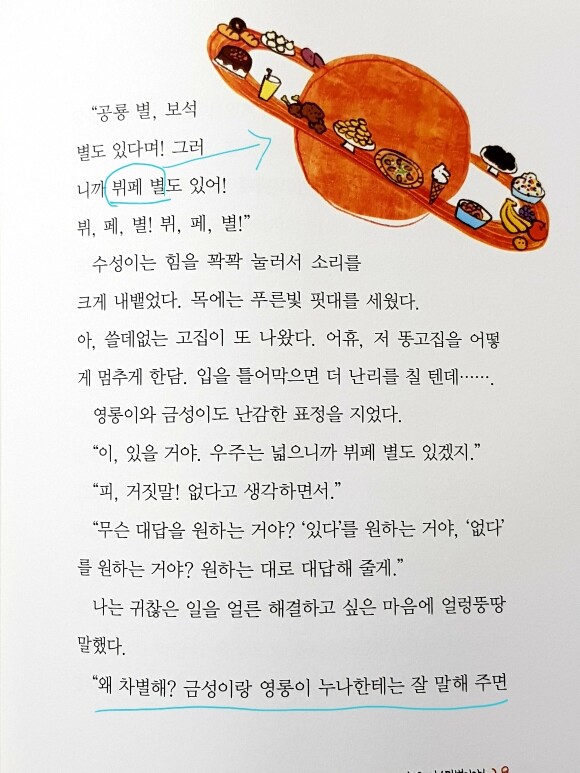 “공룡 별, 보석
별도 있다며! 그러
니까 뷔페 별도 있어!
뷔, 페, 별! 뷔, 페, 별!”
수성이는 힘을 꽉꽉 눌러서 소리를
크게 내뱉었다. 목에는 푸른빛 핏대를 세웠다.
아, 쓸데없는 고집이 또 나왔다. 어휴, 저 똥고집을 어떻
게 멈추게 한담. 입을 틀어막으면 더 난리를 칠 텐데…….
영롱이와 금성이도 난감한 표정을 지었다.
“이, 있을 거야. 우주는 넓으니까 뷔페 별도 있겠지.”
“피, 거짓말! 없다고 생각하면서.”
“무슨 대답을 원하는 거야? ‘있다’를 원하는 거야, ‘없다’
를 원하는 거야? 원하는 대로 대답해 줄게.”
나는 귀찮은 일을 얼른 해결하고 싶은 마음에 얼렁뚱땅
말했다.
“왜 차별해? 금성이랑 영롱이 누나한테는 잘 말해 주면